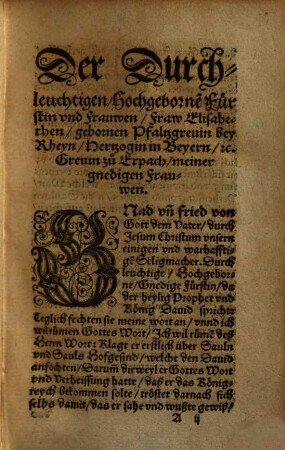 Der Durch-
leuchtigen/Hochgebornē Für
stin vnd Frauwen/Fraw Elisabe-
then/gebornen Pfaltzgreuin bey
Rheyn/Hertzogin in Beyern/ꝛc.
Greuin zů Erpach/meiner
gnedigen Frau-
wen.
GNad vñ fried von
Gott dem Vater/durch
Jesum Christum vnsern
einigen vnd warhaffti-
gē Seligmacher. Durch
leuchtige/Hochgebor-
ne/Gnedige Fürstin/da
der heylig Prophet vnd
König Dauid spricht:
Teglich fechten sie meine wort an/vnnd ich
wil rümen Gottes Wort/Ich wil rümē deß
Herrn Wort: Klagt er erstlich über Sauln
vnd Sauls Hofgesind/welche den Dauid
anfochten/Darum̃ die weyl er Gottes Wort
vnd Verheissung hatte/daß er das König-
reych bekommen solte/tröstet darnach sich
selbs damit/das er sahe vnd wußte gewiß/
A ij